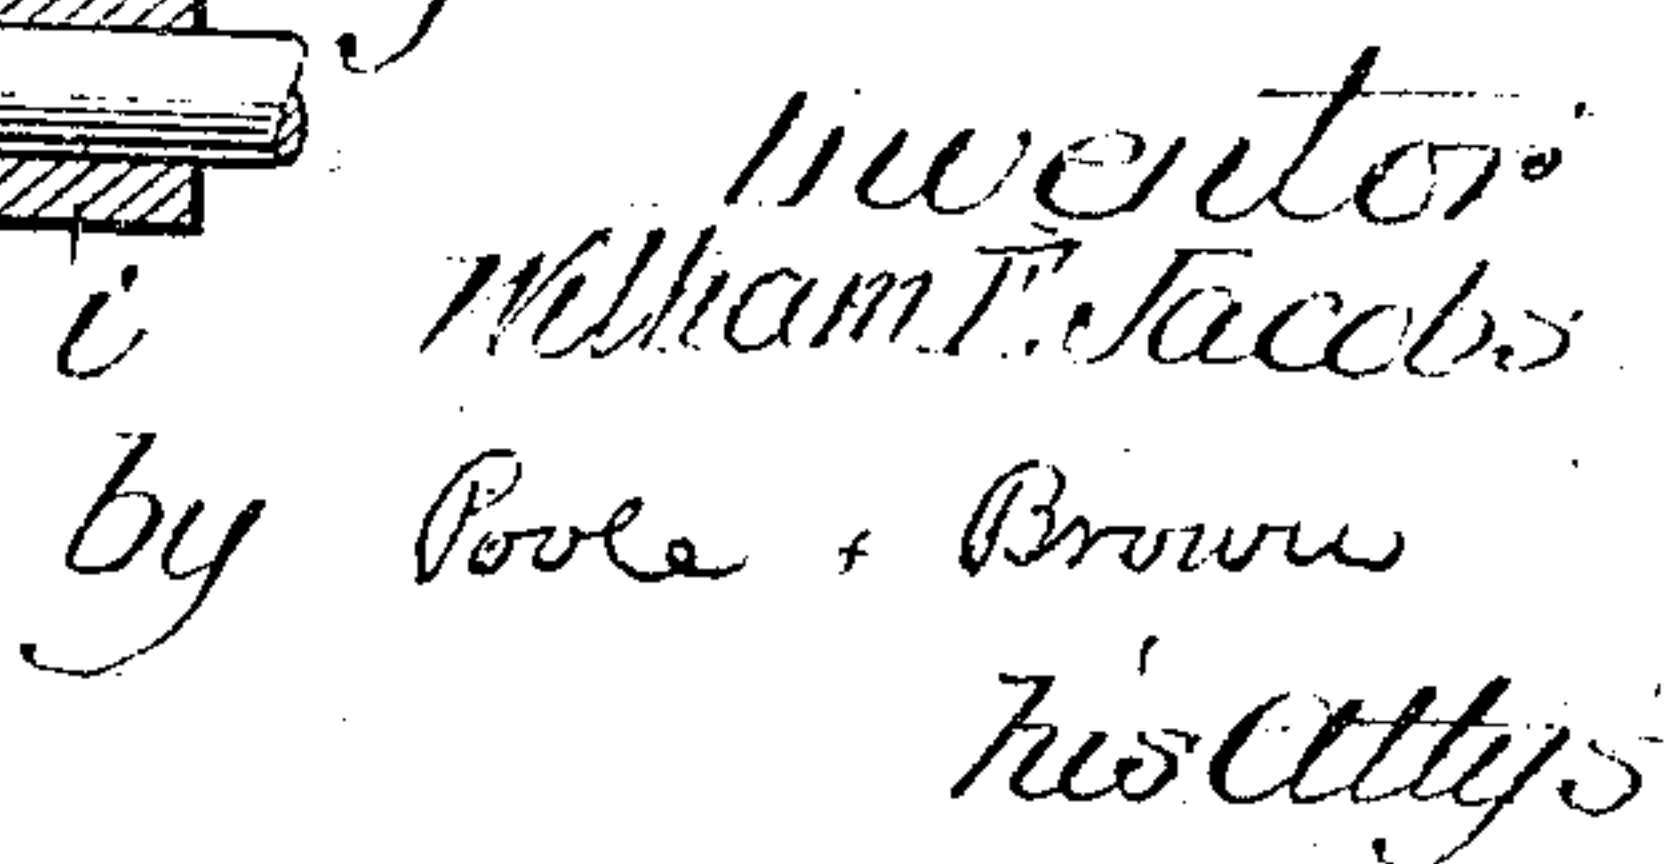 Inventor
i
William F. Jacobs
by Poole + Brown
his Attys